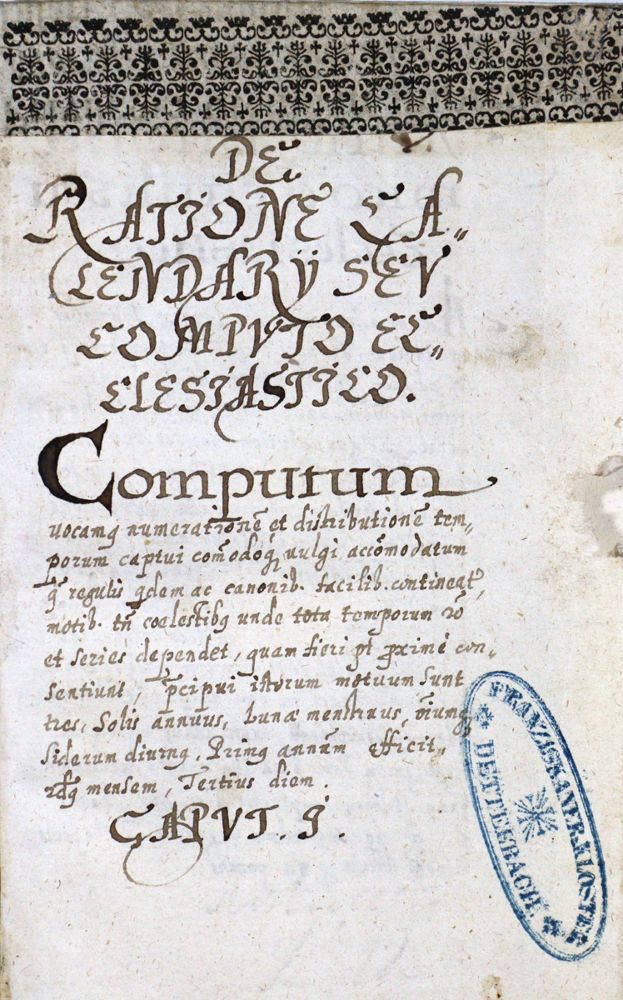 DE
RATIONE CA-
LENDARIJ SEV
COMPVTO EC-
CLESIASTICO.
Computum
uocamq numerationē et distributionē tem-
porum captui com̄odoq uulgi accōmodatum
q̄ regulis qdem ac canonib. facilib. contineat,
motib. tn̄ coelestibq unde tota temporum rō
et series dependet, quam fieri pt proxime con-
sentiunt, p̄cipui istorum motuum sunt
tres, Solis annuus, Lunæ menstruus,
siderum diurnq. Primq annūm efficit,
mensem, Tertius diem.
CAPVT. I.
FRANZISKANERKLOSTER
DETTELBACH.